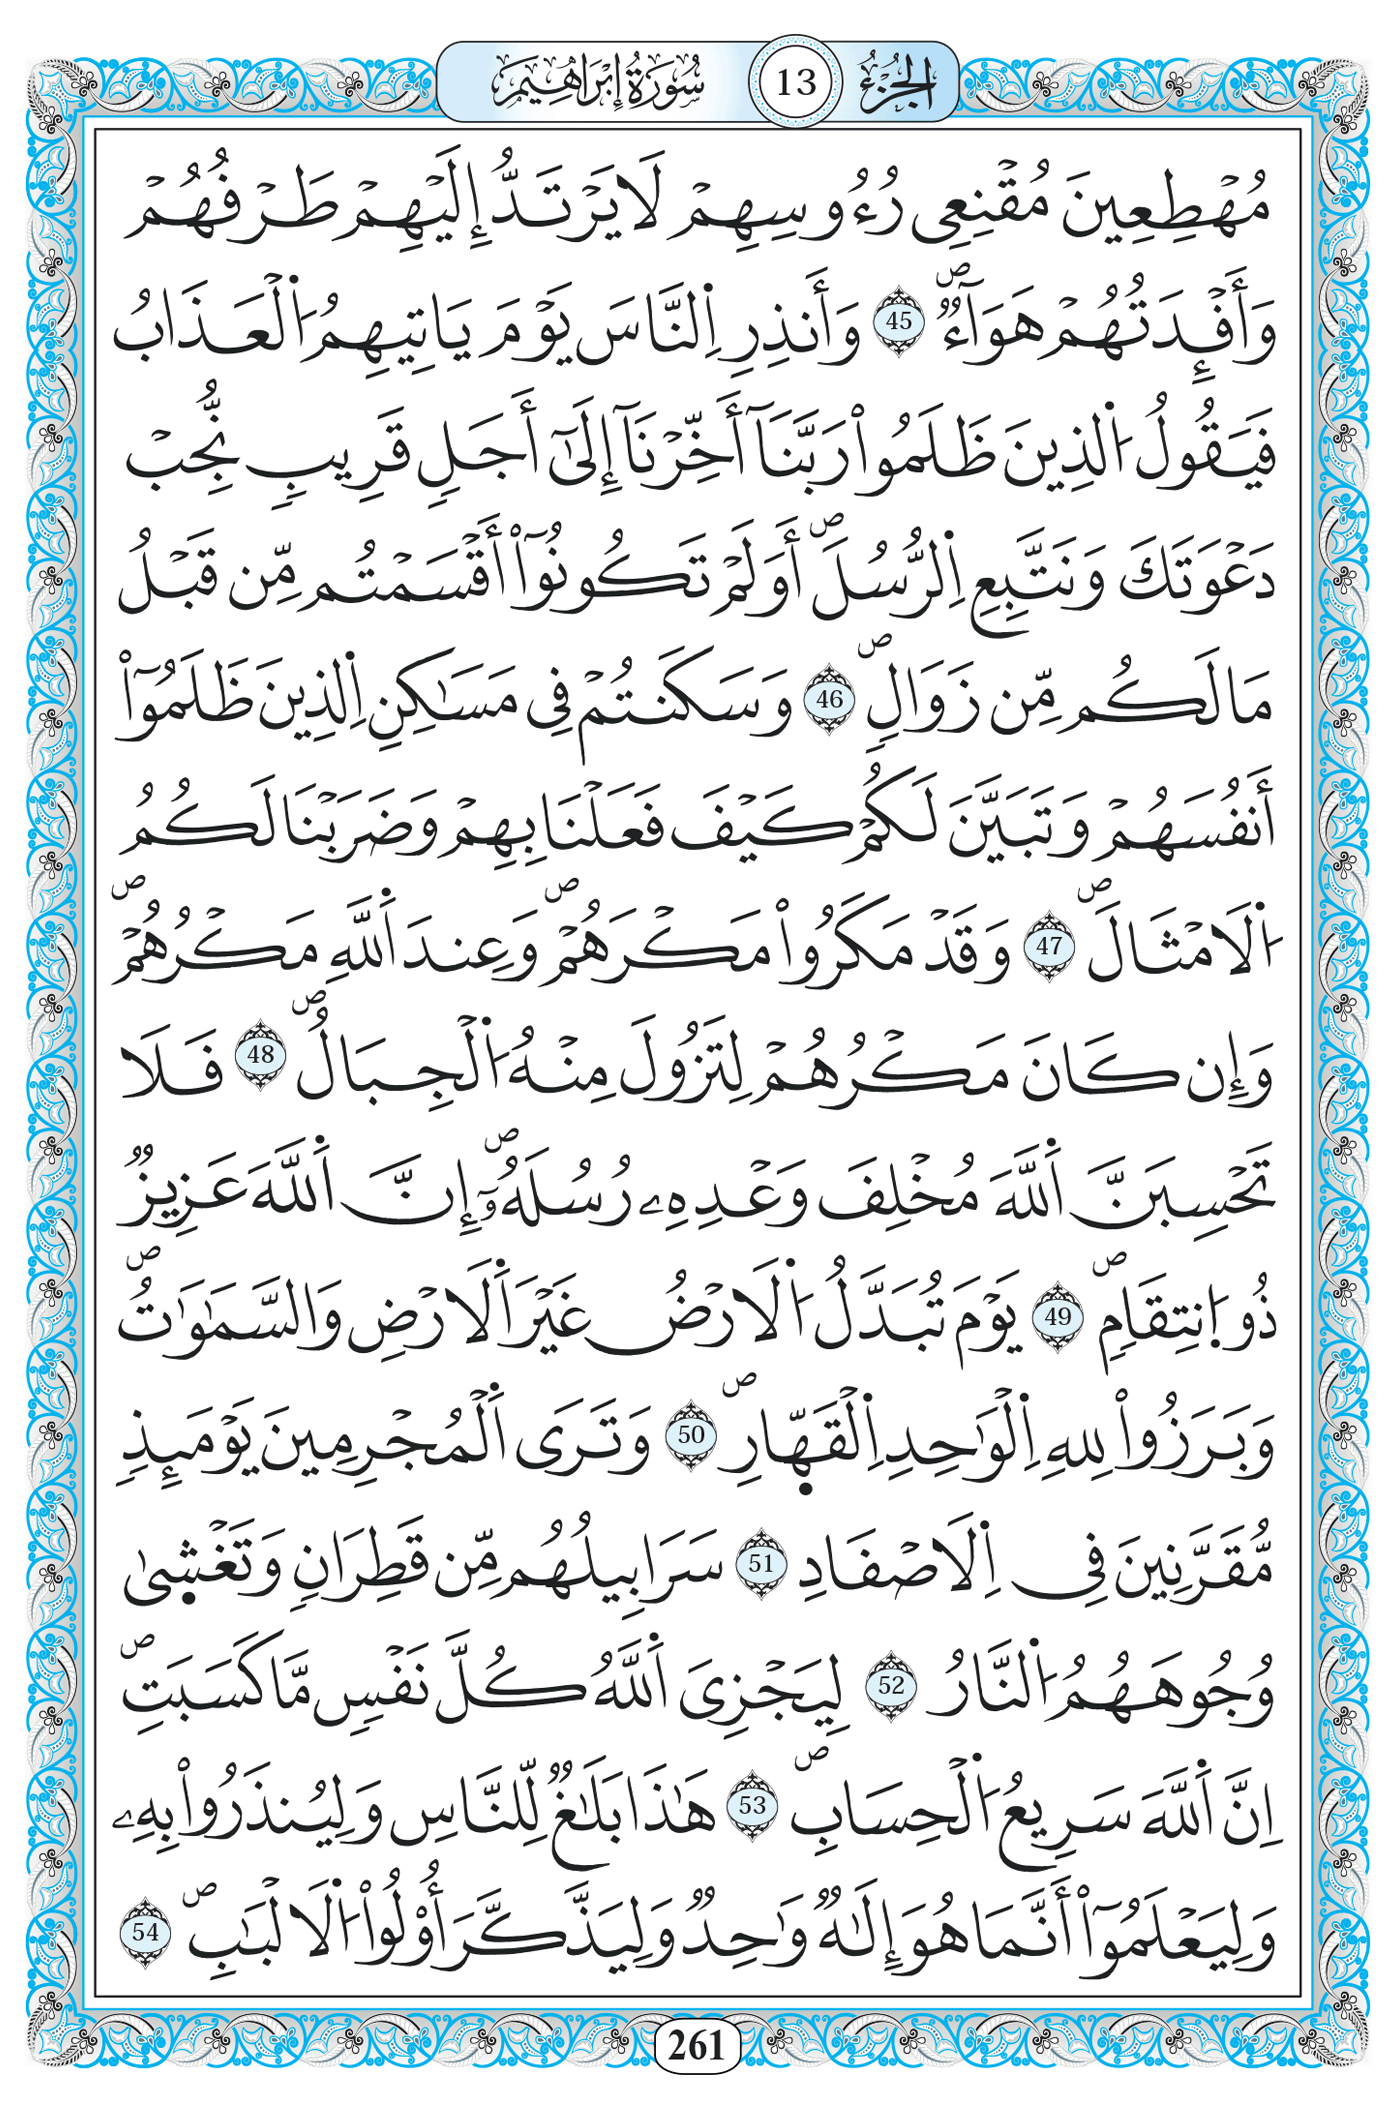 الجزء 13 سورة إبراهيم
مُهْطِعِينَ مُقْنِعِے رُءُوسِهِمْ لَا يَرْتَدُّ إِلَيْهِمْ طَرْفُهُمْ
وَأَفْـِٕدَتُهُمْ هَوَآءٌۖ 45 وَأَنذِرِ اِ۬لنَّاسَ يَوْمَ يَاتِيهِمُ اُ۬لْعَذَابُ
فَيَقُولُ اُ۬لذِينَ ظَلَمُواْ رَبَّنَآ أَخِّرْنَآ إِلَىٰٓ أَجَلٖ قَرِيبٖ نُّجِبْ
دَعْوَتَكَ وَنَتَّبِعِ اِ۬لرُّسُلَۖ أَوَلَمْ تَكُونُوٓاْ أَقْسَمْتُم مِّن قَبْلُ
مَا لَكُم مِّن زَوَالٖۖ 46 وَسَكَنتُمْ فِے مَسَٰكِنِ اِ۬لذِينَ ظَلَمُوٓاْ
أَنفُسَهُمْ وَتَبَيَّنَ لَكُمْ كَيْفَ فَعَلْنَا بِهِمْ وَضَرَبْنَا لَكُمُ
اُ۬لَامْثَالَۖ 47 وَقَدْ مَكَرُواْ مَكْرَهُمْۖ وَعِندَ اَ۬للَّهِ مَكْرُهُمْۖ
وَإِن كَانَ مَكْرُهُمْ لِتَزُولَ مِنْهُ اُ۬لْجِبَالُۖ 48 فَلَا
تَحْسِبَنَّ اَ۬للَّهَ مُخْلِفَ وَعْدِهِۦ رُسُلَهُۥٓۖ إِنَّ اَ۬للَّهَ عَزِيزٞ
ذُو اُ۪نتِقَامٖۖ 49 يَوْمَ تُبَدَّلُ اُ۬لَارْضُ غَيْرَ اَ۬لَارْضِ وَالسَّمَٰوَٰتُۖ
وَبَرَزُواْ لِلهِ اِ۬لْوَٰحِدِ اِ۬لْقَهّ۪ارِۖ 50 وَتَرَى اَ۬لْمُجْرِمِينَ يَوْمَئِذٖ
مُّقَرَّنِينَ فِے اِ۬لَاصْفَادِ 51 سَرَابِيلُهُم مِّن قَطِرَانٖ وَتَغْش۪ىٰ
وُجُوهَهُمُ اُ۬لنَّارُ 52 لِيَجْزِيَ اَ۬للَّهُ كُلَّ نَفْسٖ مَّا كَسَبَتِۖ
اِنَّ اَ۬للَّهَ سَرِيعُ اُ۬لْحِسَابِۖ 53 هَٰذَا بَلَٰغٞ لِّلنَّاسِ وَلِيُنذَرُواْ بِهِۦ
وَلِيَعْلَمُوٓاْ أَنَّمَا هُوَ إِلَٰهٞ وَٰحِدٞ وَلِيَذَّكَّرَ أُوْلُواْ اُ۬لَالْبَٰبِۖ 54
261